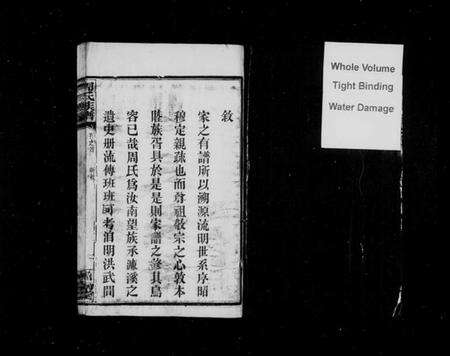 敘
家之有譜所以溯源流明世系序昭
穆定親疎也而尊祖敬宗之心敦本
睦族胥具於是是則家譜之修其烏
容已哉周氏爲汝南望族承濂溪之
遺史册流傳班班可考洎明洪武間
周氏族譜
Whole Volume
Tight Binding
Water Damage